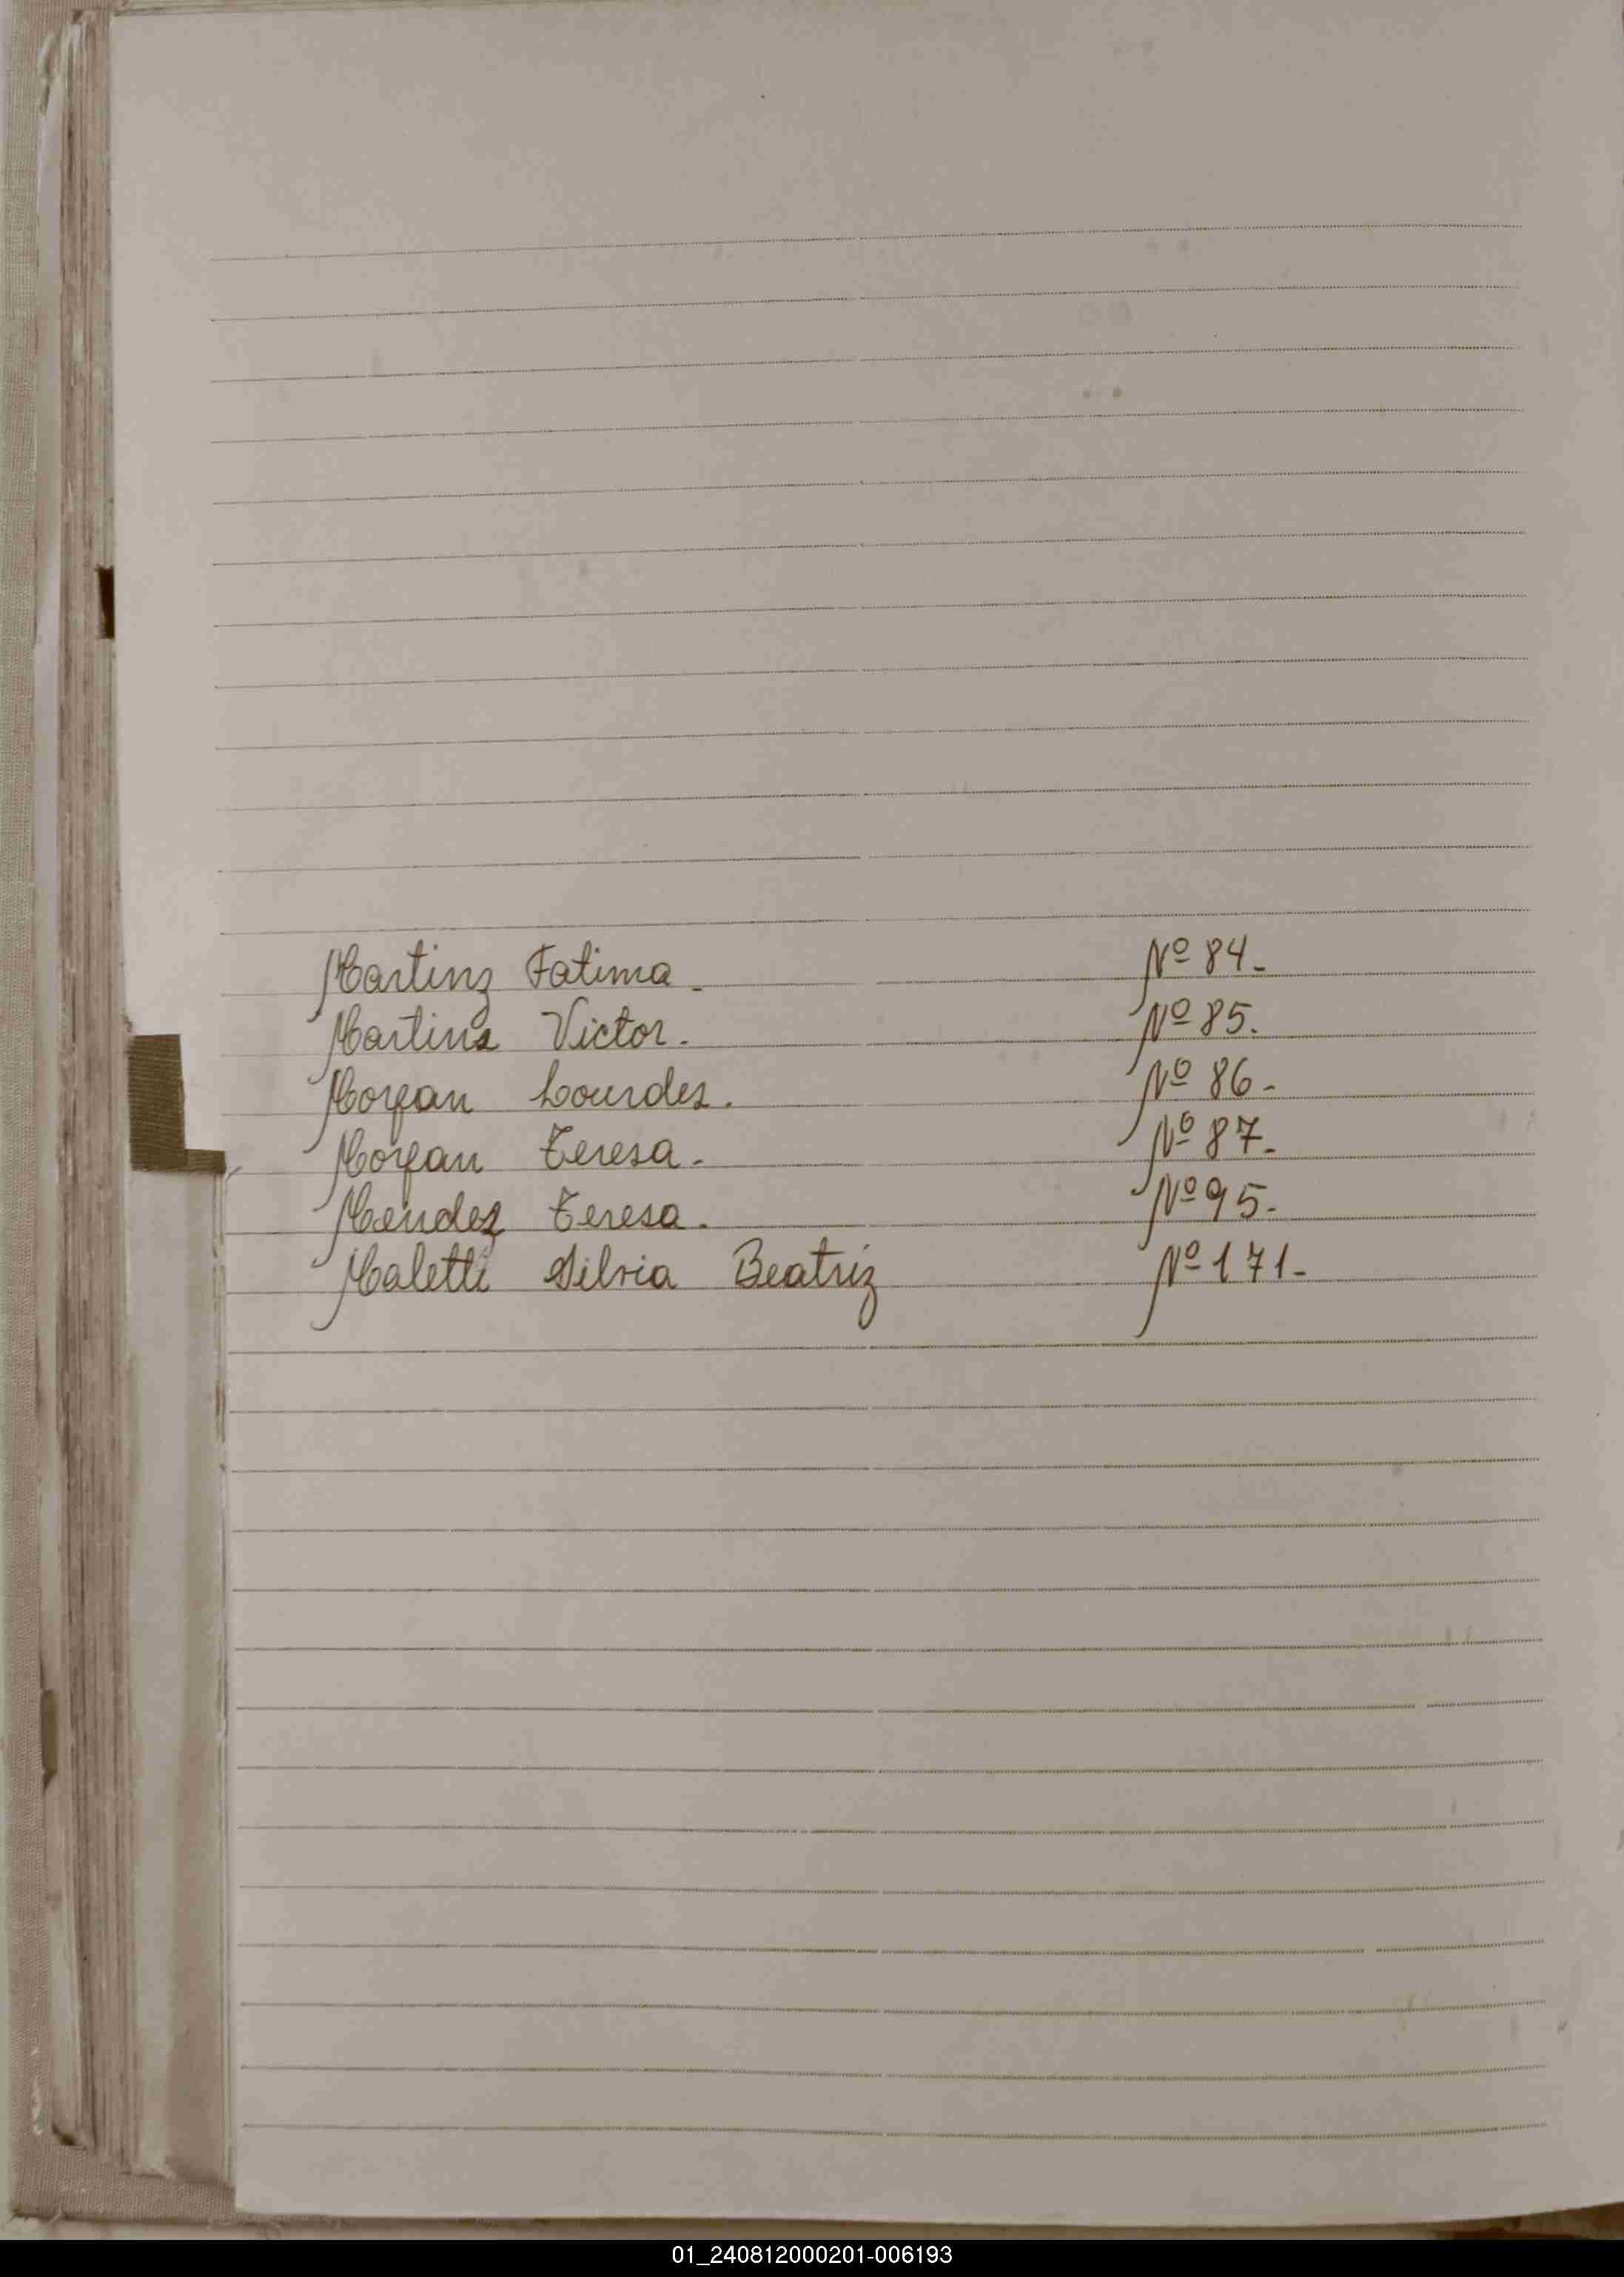 Martinz Fatima - Nº 84-
Martins Victor. Nº 85.
Moyan Lourdes. Nº 86-
Moyan Teresa. Nº 87-
Mendez Teresa. Nº 95-
Maletti Silvia Beatriz Nº 171-
01_240812000201-006193